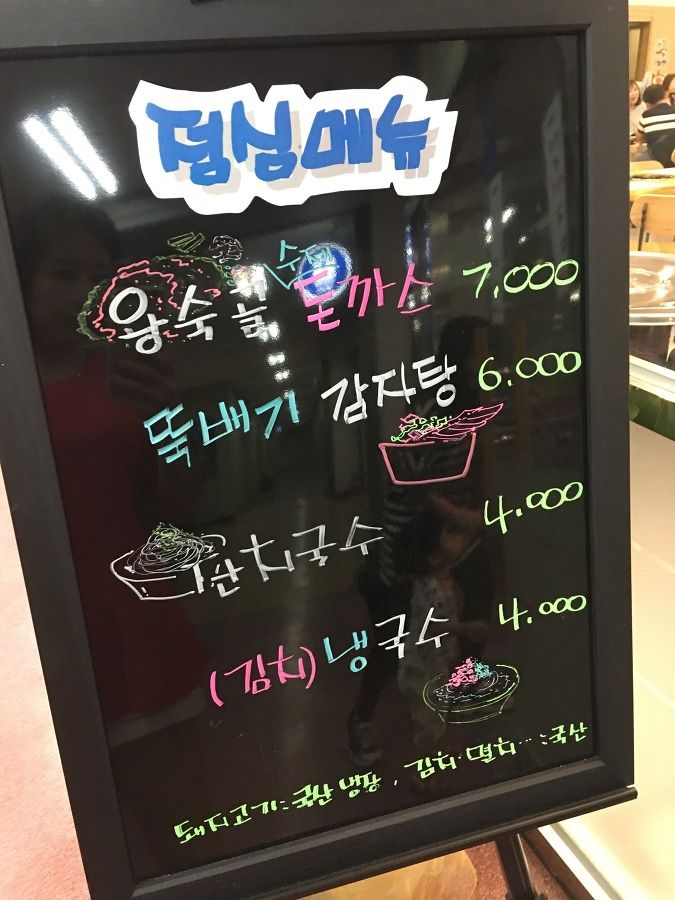 점심메뉴
왕숙골 수제 돈까스 7,000
뚝배기 감자탕 6.000
잔치국수 4.000
(김치)냉국수 4.000
돼지고기:국산 냉장, 김치·멸치…:국산